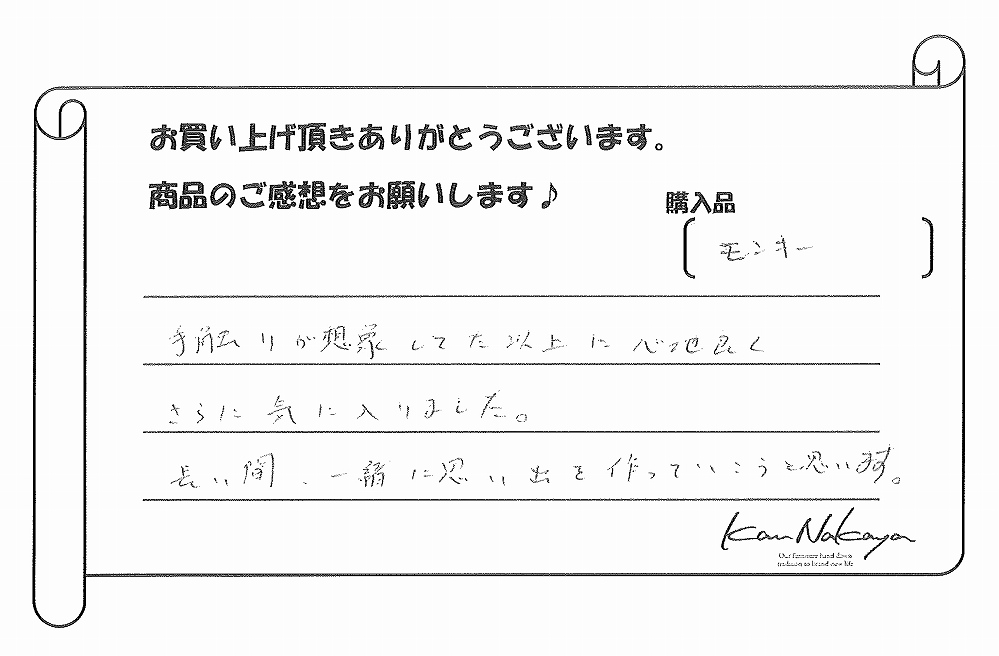 お買い上げ頂きありがとうございます。
商品のご感想をお願いします♪
購入品
モンキー
手触りが想象してた以上に心地良く
さらに気に入りました。
長い間、一緒に思い出を作っていこうと思います。
Kan Nakaya
Our furniture hand down
tradition to brand new life